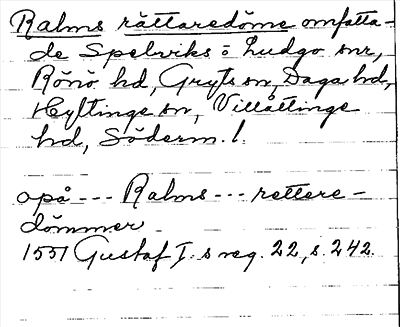 Ralms rättaredöme omfatta-
de Spelviks o Ludgo snr,
Rönö hd, Gryts sn, Daga hd,
Hyltinge sn, Villåttinge
hd, Söderm. l.
opå --- Ralms --- rettere-
dömmer
1551 Gustaf I. s reg. 22, s. 242.